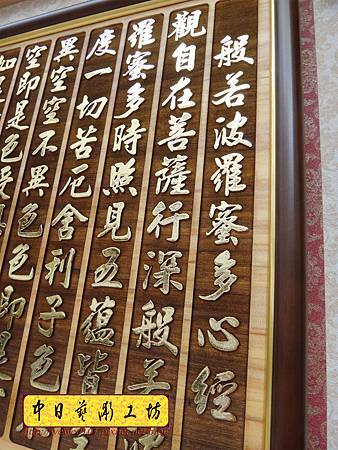 般若波羅蜜多心經
觀自在菩薩行深般若
羅蜜多時照見五蘊皆
度一切苦厄舍利子色
異空空不異色色即是
空即是色受想
如是
中日藝彫工坊